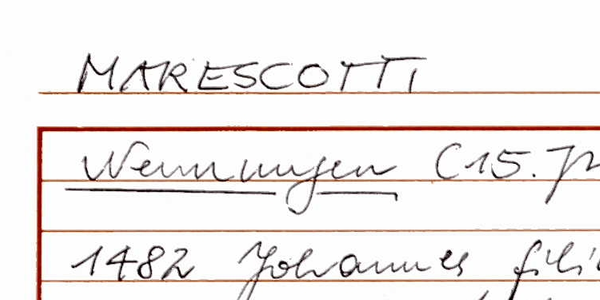 MARESCOTTI
Nennungen (15. Jh
1482 Johannes fili